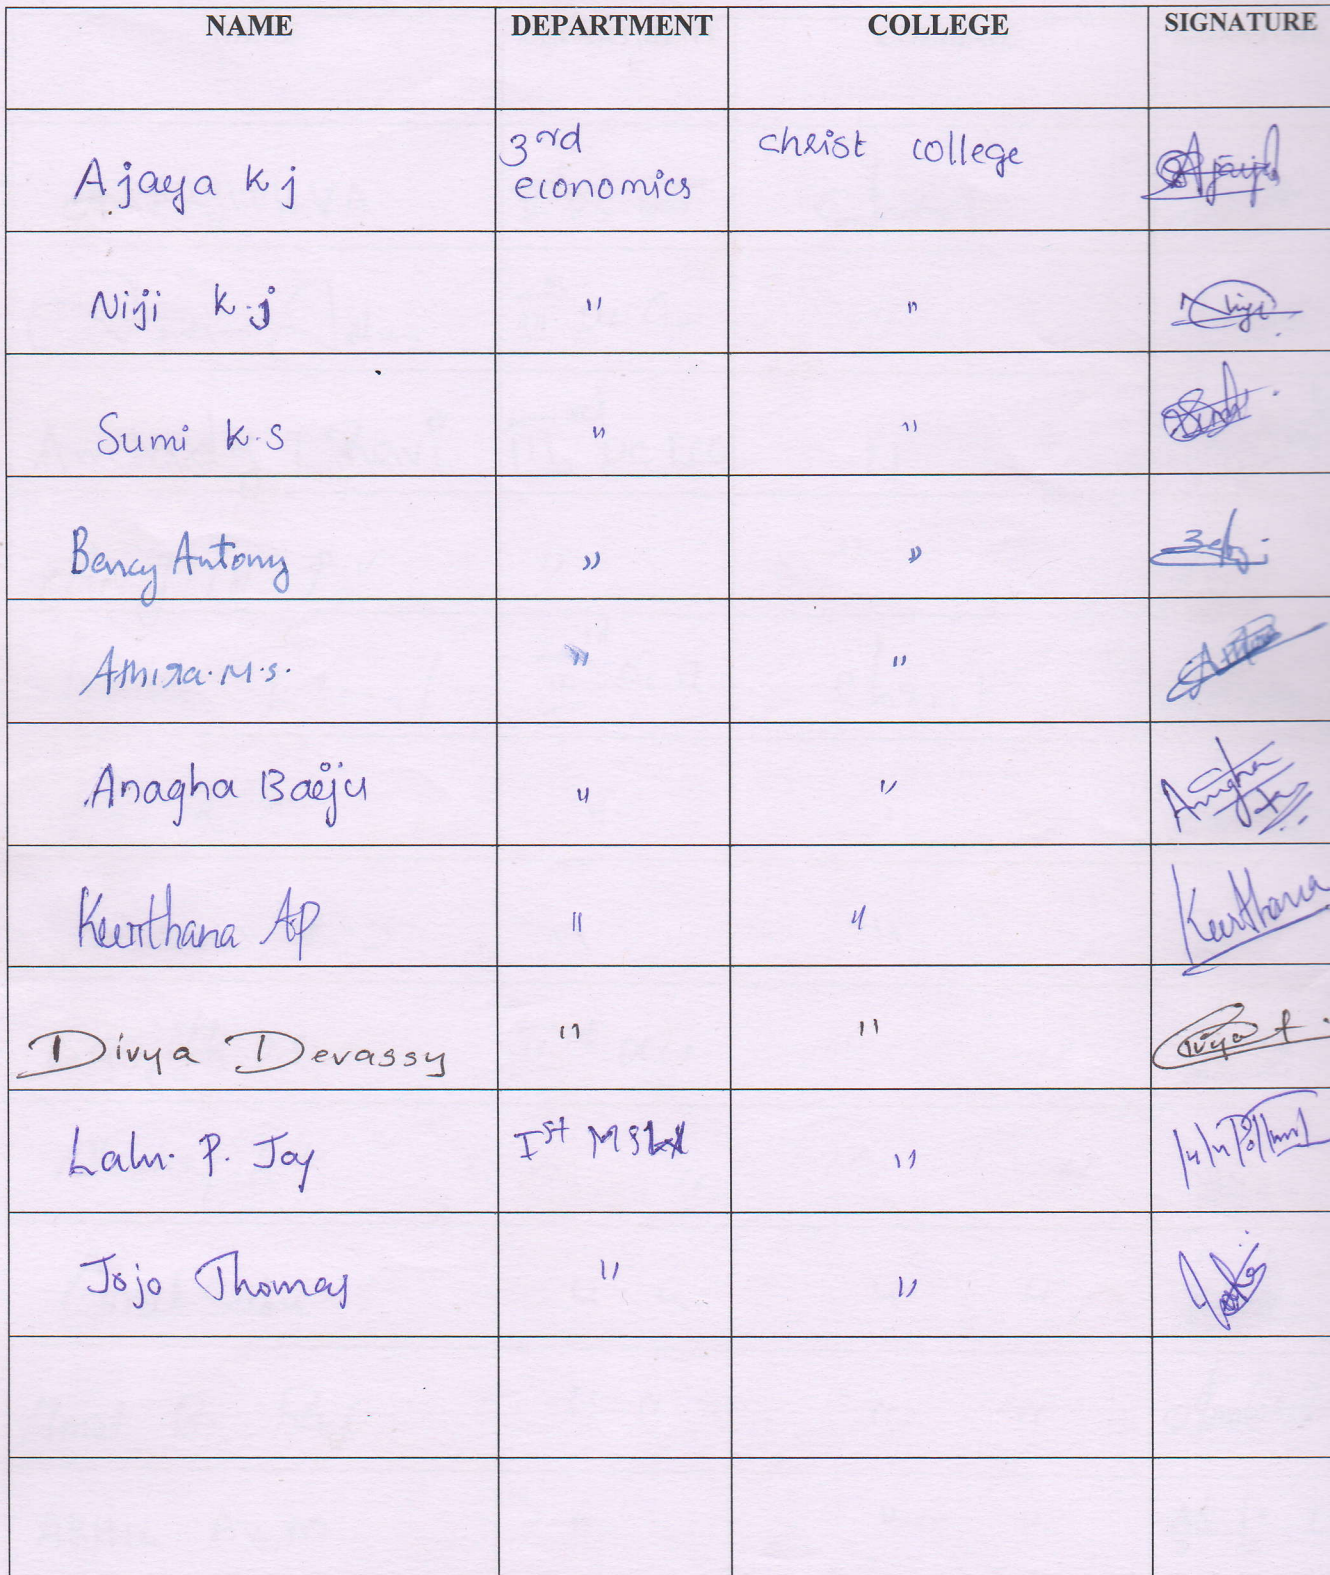 NAME DEPARTMENT COLLEGE SIGNATURE
Ajaya K j 3rd economics christ college Ajaya
Niji K.j " " Niji
Sumi K.S " "
Bency Antony " "
Athira.M.s. " "
Anagha Baiju " " Anagha
Keerthana AP " " Keerthana
Divya Devassy " " Divya
P. Joy Ist "
Jojo Thomas " "